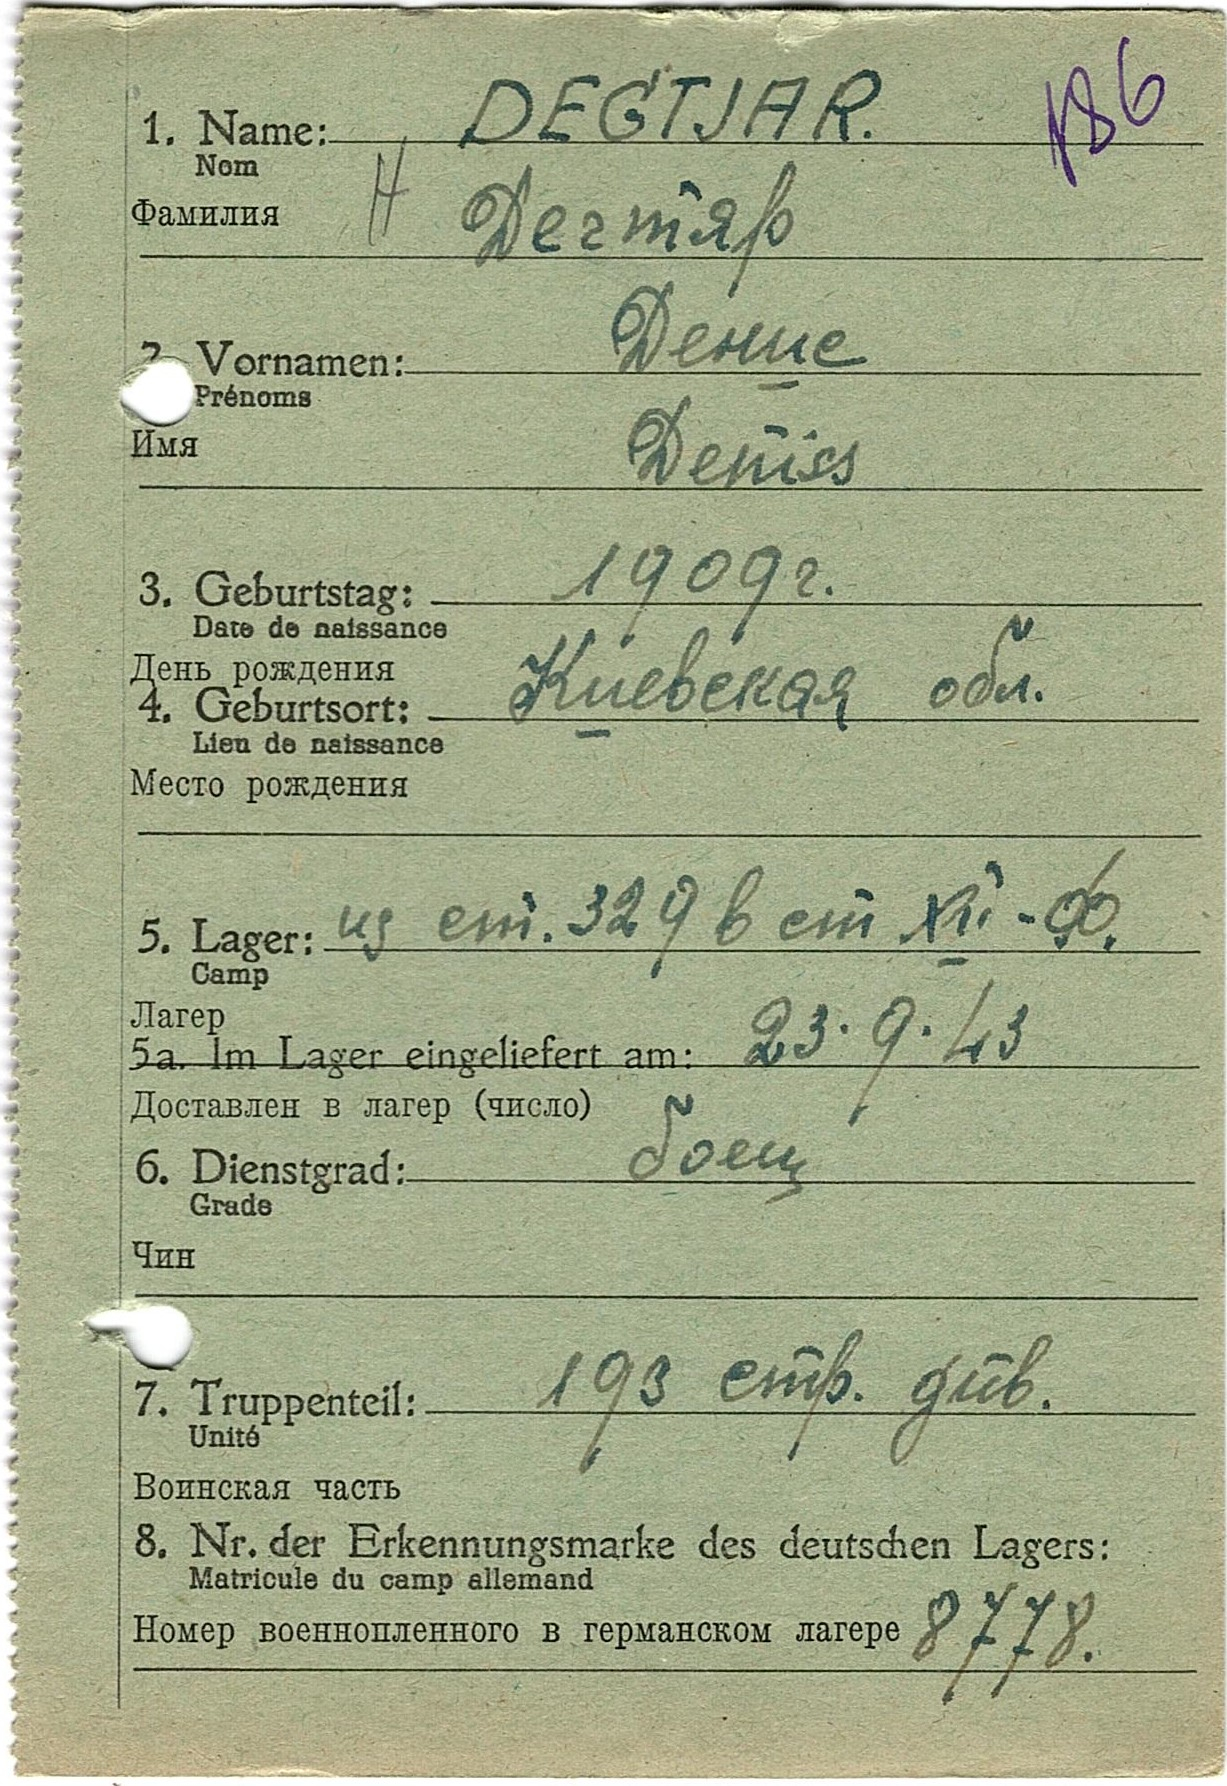 186
1. Name: DEGTJAR.
Nom
Фамилия Н Дегтяр
2. Vornamen: Денис
Prénoms
Имя Deniss
3. Geburtstag: 1909 г.
Date de naissance
День рождения
4. Geburtsort: Киевская обл.
Lieu de naissance
Место рождения
5. Lager: из ст. 329 в ст XII-Ф.
Camp
Лагер
5a. Im Lager eingeliefert am: 23.9.43
Доставлен в лагер (число)
6. Dienstgrad: боец
Grade
Чин
7. Truppenteil: 193 стр. див.
Unité
Воинская часть
8. Nr. der Erkennungsmarke des deutschen Lagers:
Matricule du camp allemand
Номер военнопленного в германском лагере 8778.